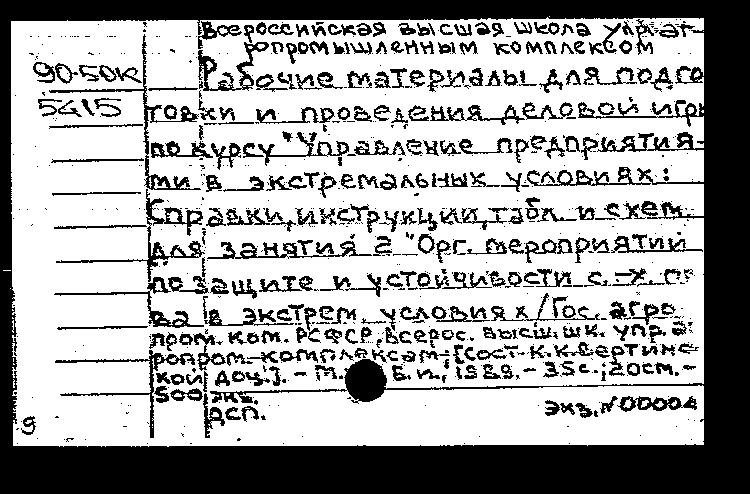 Всероссийская высшая школа упр. аг-
ропромышленным комплексом
90-50к Рабочие материалы для подго
5415 товки и проведения деловой игры
по курсу "Управление предприятия-
ми в экстремальных условиях:
Справки, инструкции, табл. и схем.
для занятия 2 "Орг. мероприятий
по защите и устойчивости с.-х. пр
ва в экстрем. условиях / Гос. агро
пром. ком. РСФСР, Всерос. высш. шк. упр. аг
ропром. комплексом; [Сост. К.К. Вертинс-
кой доц.]. - М. Б.и., 1989. - 35с.; 20см. -
500 экз.
ДСП. Экз. №00004
9